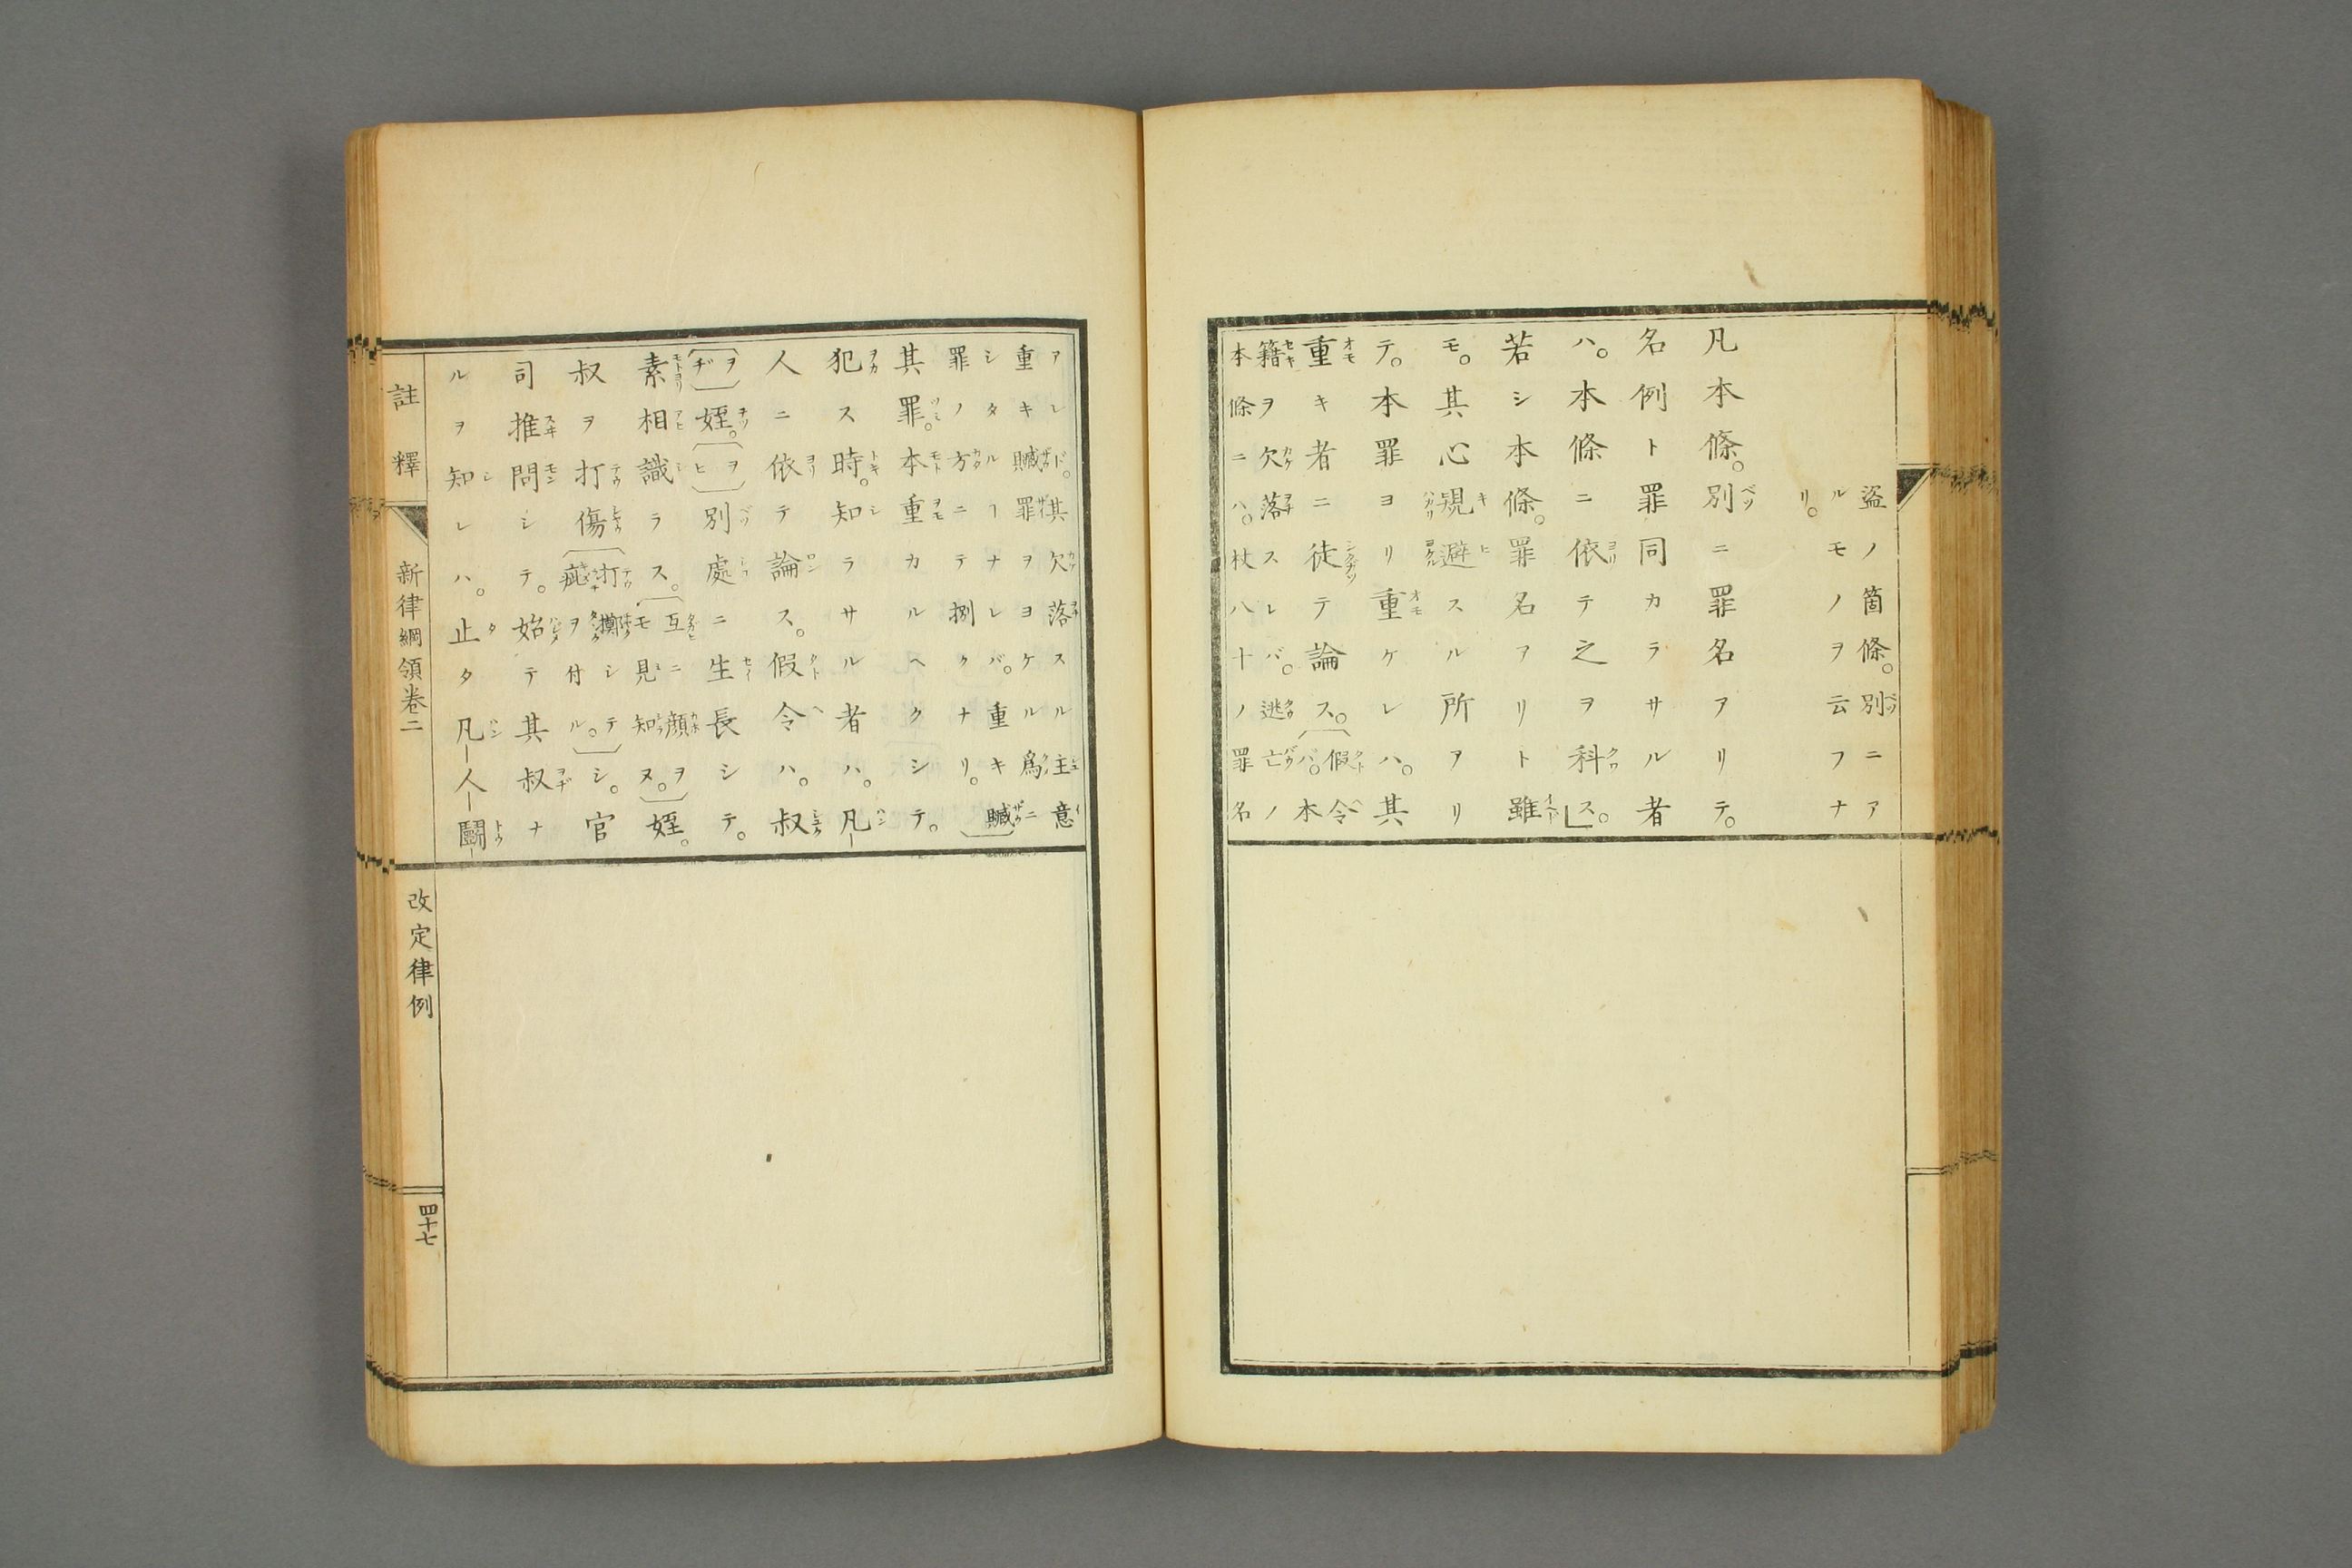 盗ノ箇條。別ニア
ルモノヲ云フナ
リ。
凡本條。別ニ罪名アリテ。
名例ト罪同カラサル者
ハ。本條ニ依テ之ヲ科ス。
若シ本條。罪名アリト雖
モ。其心規避スル所アリ
テ。本罪ヨリ重ケレハ。其
重キ者ニ徒テ論ス。假令バ。本
籍ヲ欠落スレバ。逃亡ノ
本條ニハ。杖八十ノ罪名
アレド。其欠落スル主意
重キ贓罪ヲヨケル爲ニ
シタルヿナレバ。重キ贓
罪ノ方ニテ捌クナリ。
其罪。本重カルヘクシテ。
犯ス時。知ラサル者ハ。凡
人ニ依テ論ス。假令ハ。叔
(ヲヂ)姪。(ヲヒ)別處ニ生長シテ。
素相識ラス。(互ニ顔ヲモ見知ヌ。)姪。
叔ヲ打傷(打擲シテ疵ヲ付ル。)シ。官
司推問シテ。始テ其叔ナ
ルヲ知レハ。止タ凡人鬪
註釋 新律綱領卷二 改定律例 四十七